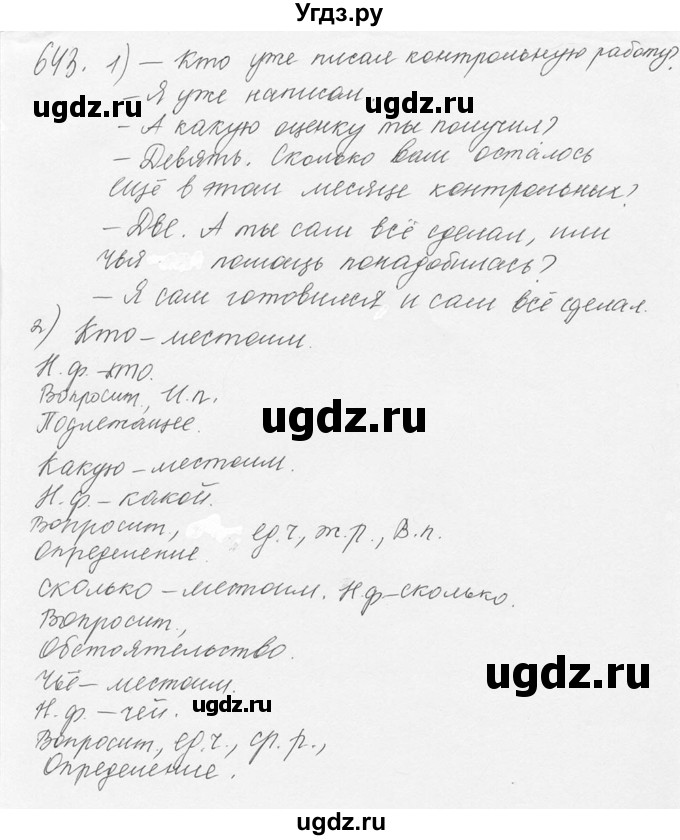 Угдз.ру
643. 1) – Кто уже писал контрольную работу?
– Я уже написал
ugdz.ru ugdz.ru
– А какую оценку ты получил?
– Девять. Сколько вам осталось
ещё в этом месяце контрольных?
– Две. А ты сам всё сделал, или
чья помощь понадобилась?
– Я сам готовился и сам всё сделал.
2) Кто – местоим.
Н.ф. – кто.
Вопросит, И.п.
Подлежащее.
ugdz.ru
Какую – местоим.
Н.ф. – какой.
Вопросит, ед.ч, ж.р., В.п.
Определение.
Сколько – местоим. Н.ф – сколько.
Вопросит,
Обстоятельство.
ugdz.ru
Чьё – местоим.
ugdz.ru
Н.ф. – чей.
Вопросит, ед.ч., ср.р.,
Определение.
ugdz.ru